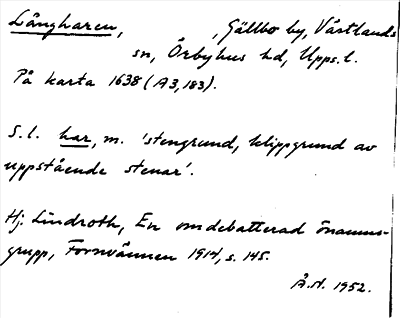 Långharen, , Gällbo by, Västlands
sn, Örbyhus hd, Upps.l.
På karta 1638 (A3,183).
S.l. har, m. 'stengrund, klippgrund av
uppstående stenar'.
Hj. Lindroth, En omdebatterad önamns-
grupp, Fornvännen 1914, s. 145.
Å.N. 1952.